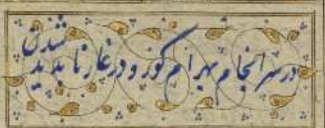 در سرانجام بهرام کور و در غار ناپدید شدن